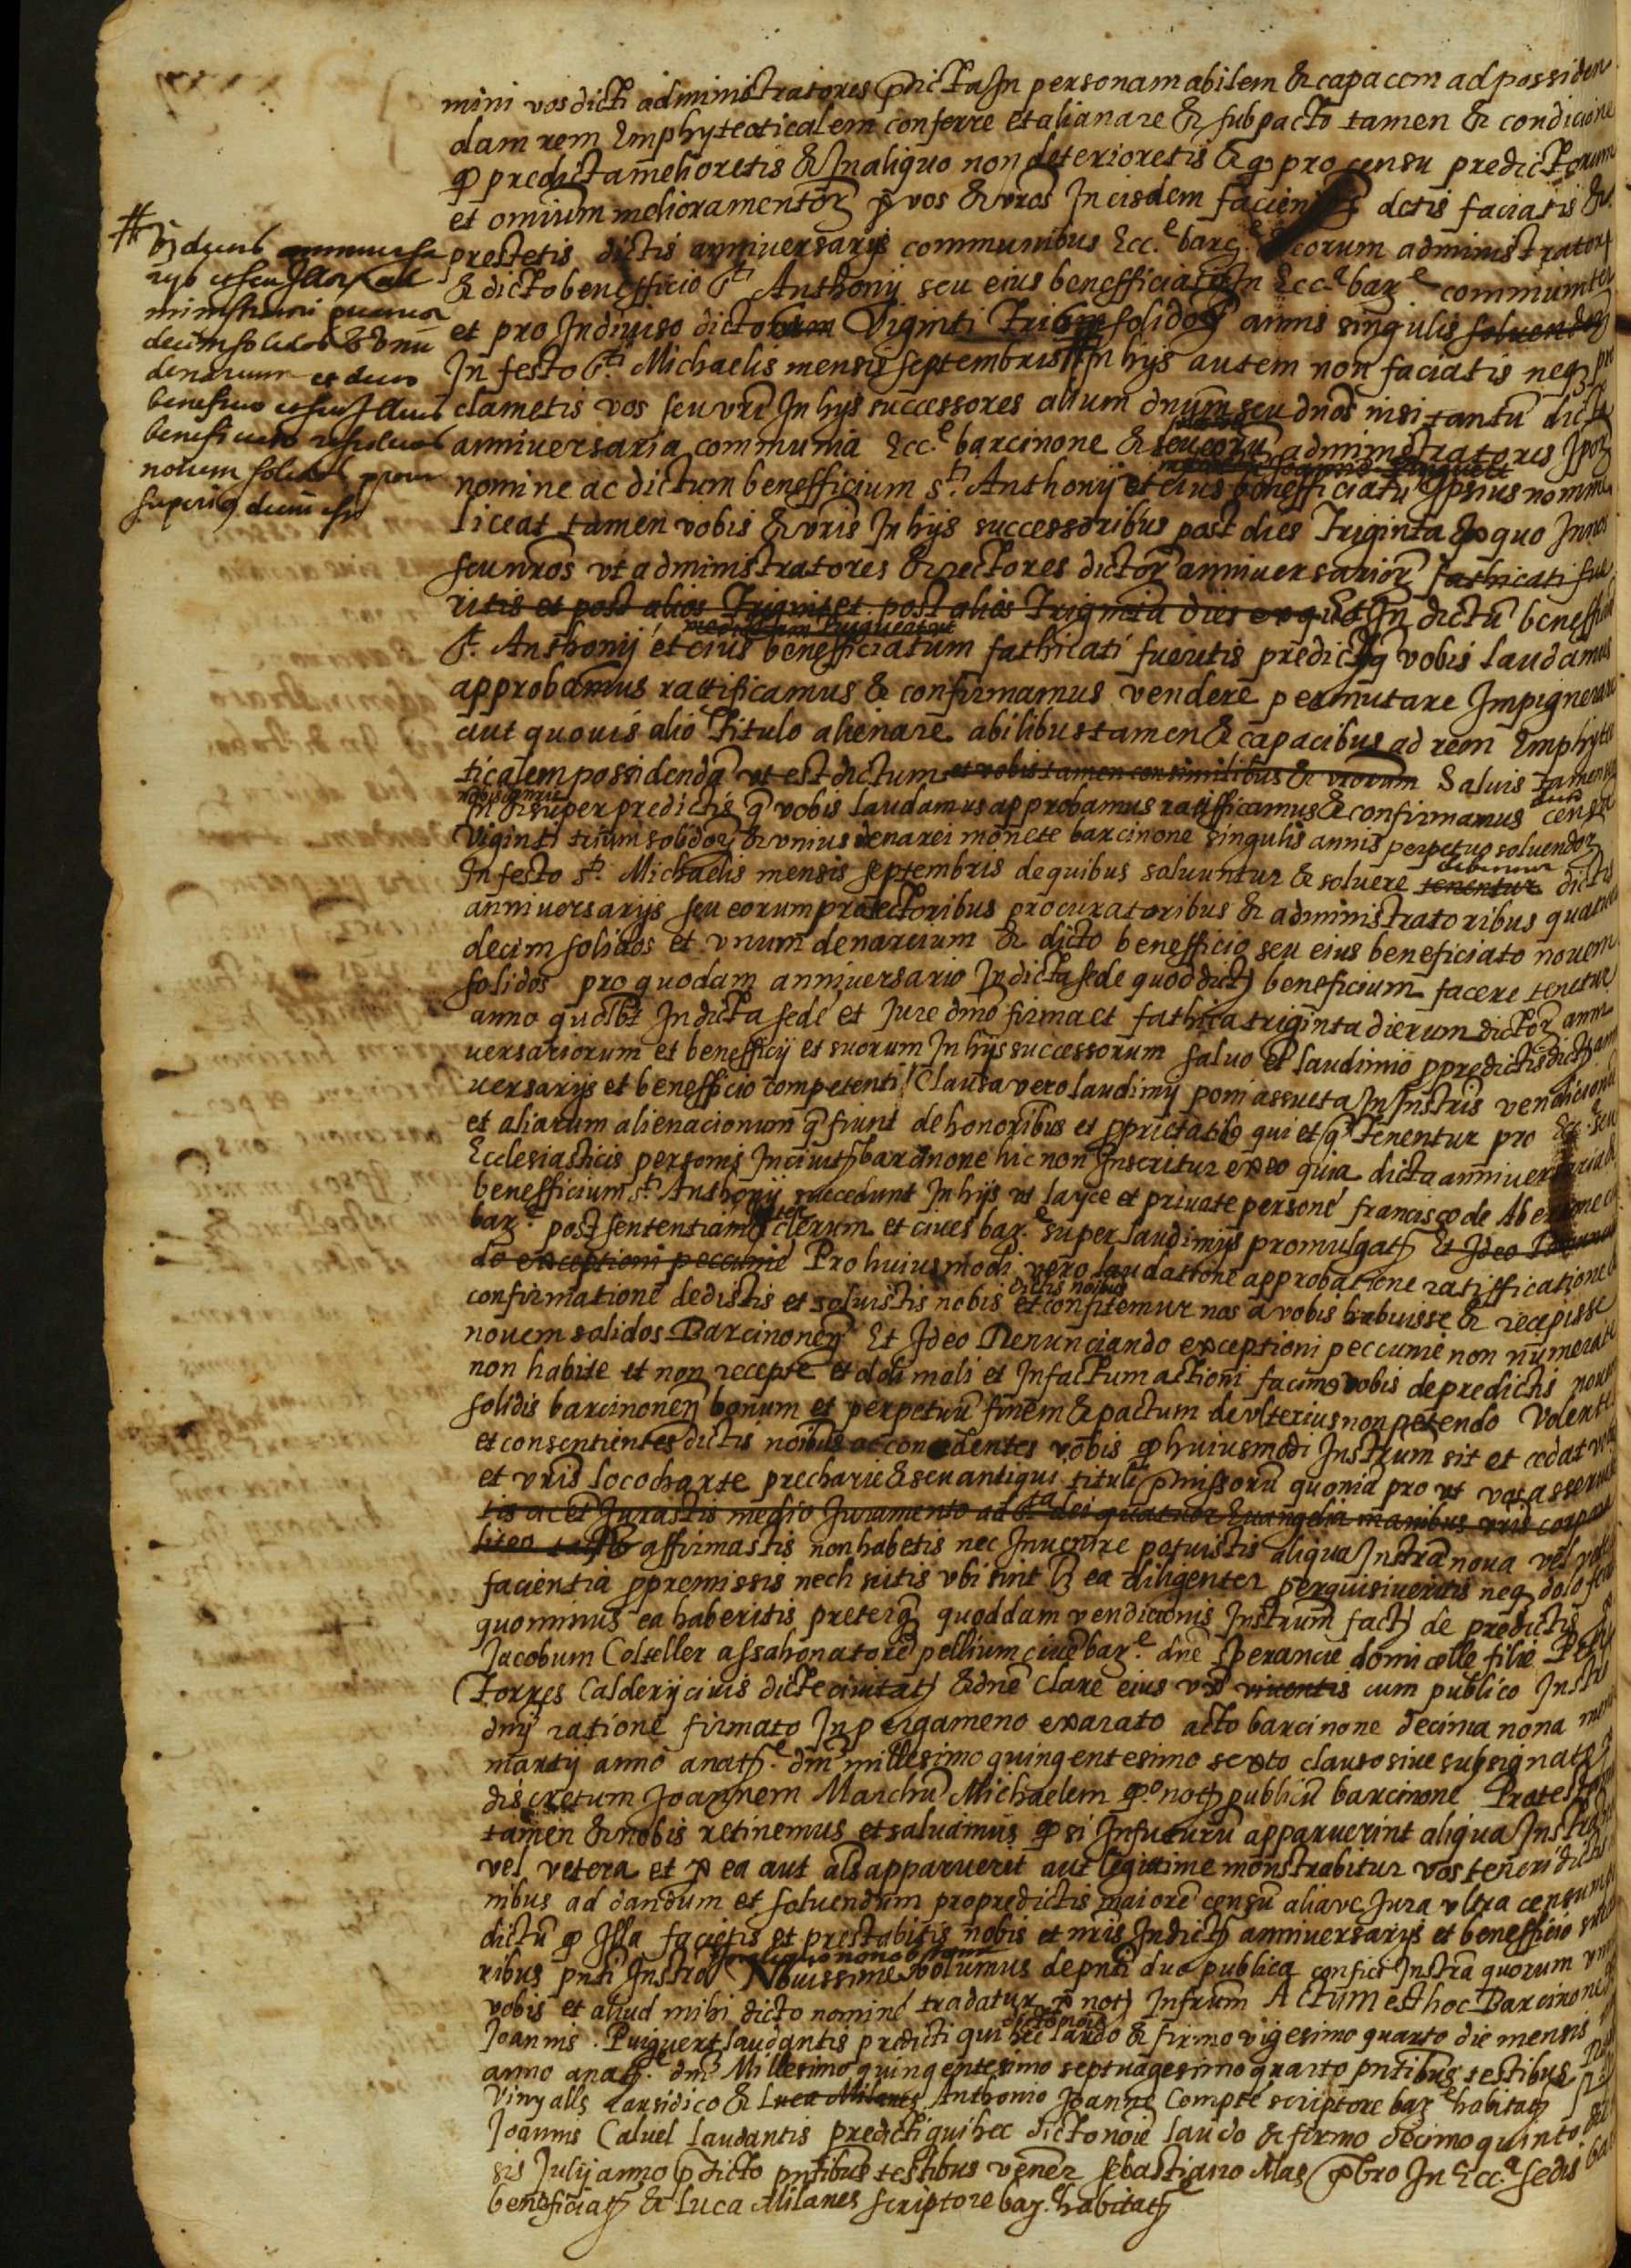 mini vos dicti administratores p̄dicta In personam abilem & capacem ad possiden
dam rem Emphyteoticalem conferre et alianare & sub pacto tamen & condicione
ꝙ predicta melioretis & In aliquo non deterioretis & ꝙ pro censu predictorum
et omium melioramentoꝝ ꝑ vos & vr̄os In eisdem detis faciatis &
prestetis dictis anniversarijs communibus Ecc.ᵉ barc. eorum administrator
& dicto benefficio Sᵗⁱ Anthonij seu eius benefficiato In Ecc.ᵃ barᵉ communiter
et pro Indiviso dicto Viginti Trium solidoꝝ annis singulis soluendoꝝ
In festo Sᵗⁱ Michaelis mensis septembris # In hijs autem non faciatis neqꝫ pro
clametis vos seu vr̄i In hijs successores alium dn̄um seu dn̄os nisi tantū dicta
anniversaria communia Ecc.ᵉ barcinone & seu eorū administratores Ipoꝝ
nomine ac dictum benefficium Sᵗⁱ Anthonij et eius benefficiatū Ipsius nomine
liceat tamen vobis & vr̄is In hijs successoribus post dies Triginta ex quo In nos
seu nr̄os vt administratores & rectores dictoꝝ anniversarioꝝ fathicati fue
ritis et post alios Trigint et post alios Triginta dies ex quo In dictū beneffici
Sᵗⁱ Anthonij et eius benefficiatum fathicati fueritis predicta q̄ vobis laudamus
approbamus rattificamus & confirmamus vendere permutare Impignorare
aut quovis alio Titulo alienare abilibus tamen & capacibus ad rem Emphyteo
ticalem possidendā vt est dictum et vobis tamen consimilibus & vr̄orum Salvis tamen
nobis
In & super predictis q̄ vobis laudamus approbamus ratifficamus & confirmamus censu
Viginti trium solidoꝝ & vnius denarei monete barcinone singulis annis perpetuo soluendoꝝ
In festo Sᵗⁱ Michaelis mensis septembris de quibus soluuntur & soluere tenentur dictis
anniversarijs seu eorum protectoribus procuratoribus & administratoribus quatuor
decim solidos et vnum denareium & dicto benefficio seu eius beneficiato novem
solidos pro quodam anniversario In dicta sede quod dictū beneficium facere tenetur
anno quolibet In dicta sede et Jure dn̄io firma et fathica triginta dierum dictoꝝ anni
versariorum et benefficij et suorum In hijs successorum salvo et laudimio p predictis dictis anni
versarijs et benefficio competenti / Clausa vero laudimij poni assueta In Instr̄is vendicionū
et aliarum alienacionum q̄ fiunt de honoribus et ꝓprietatibꝫ qui et q̄ Tenentur pro Ecc.ᵃ seu
Ecclesiasticis personis In civit̄ barcinone hic non Inseritur ex eo quia dicta anniversaria &
benefficium Sᵗⁱ Anthonij succedunt In hijs vt layce et private persone francisco de
barᵉ post sententiam inter clerum et cives barᵉ super laudimijs promulgat̄ Et Ideo Renuncian
do exceptioni peccunie Pro huiusmodi vero laudatione approbatione ratifficatione &
confirmatione dedistis et soluistis nobis dictis noībus et confitemur nos a vobis habuisse & recepisse
novem solidos Barcinoneñ Et Ideo Renunciando exceptioni peccunie non numerate
non habite et non recepte et doli mali et In factum actioni facimꝫ vobis de predictis novem
solidis barcinoneñ bonum et perpetuū finem & pactum de vlterius non petendo Volentes
et consentientes dictis noībus ac concedentes vobis ꝙ huiusmodi Instrum̄ sit et cedat vobis
et vr̄is loco charte precharie & seu antiqui tituli p̄missorū quoniā pro vt vos asserui
tis ac et Jurastis medio Juramento ad Sᵗᵃ dei quatuor Euangelia manibus vr̄is corpora
liter tactis affirmastis non habetis nec Invenire potuistis aliqua Instr̄a nova vel vetera
facientia ꝓ premissis nech scitis vbi sint lꝫ ea diligenter perquisiveritis neqꝫ dolo fecistis
quominus ea haberitis preterqꝫ quoddam vendicionis Instrum̄ fact̄ de predictis ꝑ
Jacobum Colteller assahonatorē pellium civē barᵉ dn̄e Sperancie domicelle filie Petri
Torres Calderij civis dicte civitat̄ & dn̄e Clare eius vx̄ viventis cum publico Instr̄o
dn̄ij ratione firmato In pergameno exarato acto barcinone decima nona
martij anno a natᵉ dn̄i millesimo quingentesimo sexto clauso sive subsignato ꝑ
discretum Joannem Marchū Michaelem q.ᵒ not̄ publicū barcinone Protestamur
tamen & nobis retinemus et salvamus ꝙ si In futurū apparuerint aliqua Instr̄a nova
vel vetera et ꝑ ea aut als̄ apparuerit aut legittime monstrabitur vos teneri dictis
nibus ad dandum et soluendum pro predictis maiorē censū aliave Jura vltra censum
dictū ꝙ Illa facietis et prestabitis nobis et nr̄is In dict̄ anniversarijs et benefficio successo
ribus pn̄ti Instr̄o In aliquo non obstante Novissime volumus de pn̄ti duo publica confici Instr̄a quorum vnum
vobis et aliud mihi dicto nomine tradatur ꝑ not̄ Infrum̄ Actum est hoc Barcinone
Joannis Puigvert laudantis predicti qui hec dicto noīe laudo & firmo vigesimo quarto die mensis
anno a natᵉ dn̄i Millesimo quingentesimo septuagesimo quarto pn̄tibus testibus
Vinyalls causidico & Luca Milanes Anthonio Joanne Compte scriptore barᵉ habitat̄
Joannis Calvel laudantis predicti qui hec dicto noīe laudo & firmo decimo quinto die
sis Julij anno p̄dicto pn̄tibus testibus vener̄ sebastiano Mas p̄bro In Ecc.ᵃ sedis bar
beneficiat̄ & Luca Milanes scriptore barᵉ habitat̄
#
decimsolidos & vnū
denarium et dicto
beneficio et seu Illius
beneficiato residuos
novem solidos prout
superius dictum est